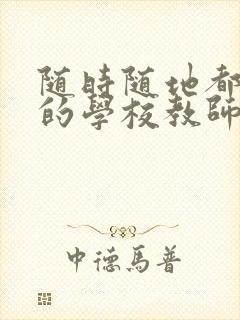 随時随地都
的學校教師
中德馬普